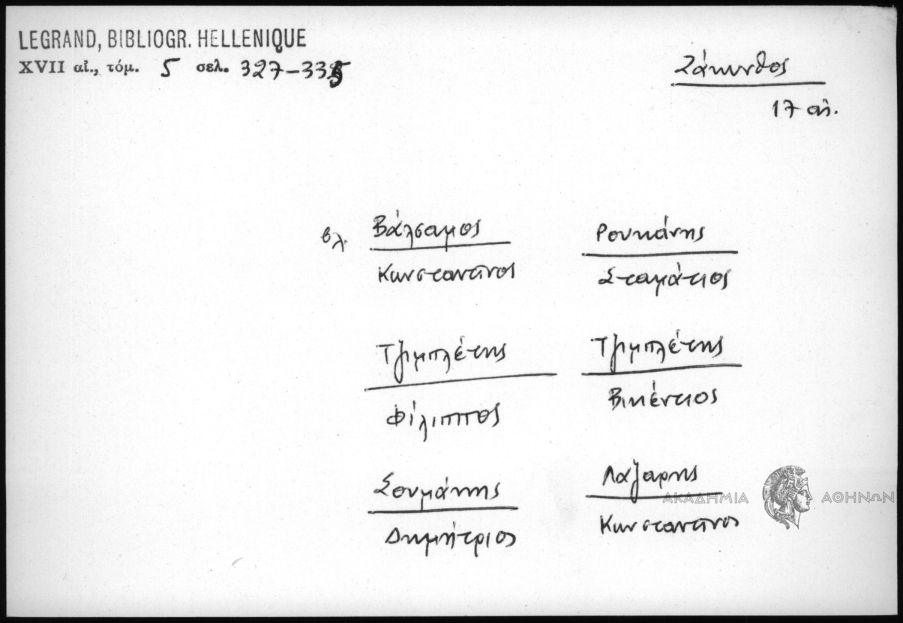 LEGRAND, BIBLIOGR. HELLENIQUE
XVII αἰ., τόμ. 5 σελ. 327-335
Ζάκυνθος
17 αἰ.
βλ. Βάλσαμος
Κωνσταντῖνος
Ρουκάνης
Σταμάτιος
Τζιμπλέτης
Φίλιππος
Τζιμπλέτης
Βικέντιος
Σουμάκης
Δημήτριος
Λάζαρης
Κωνσταντῖνος
ΑΚΑΔΗΜΙΑ ΑΘΗΝΩΝ